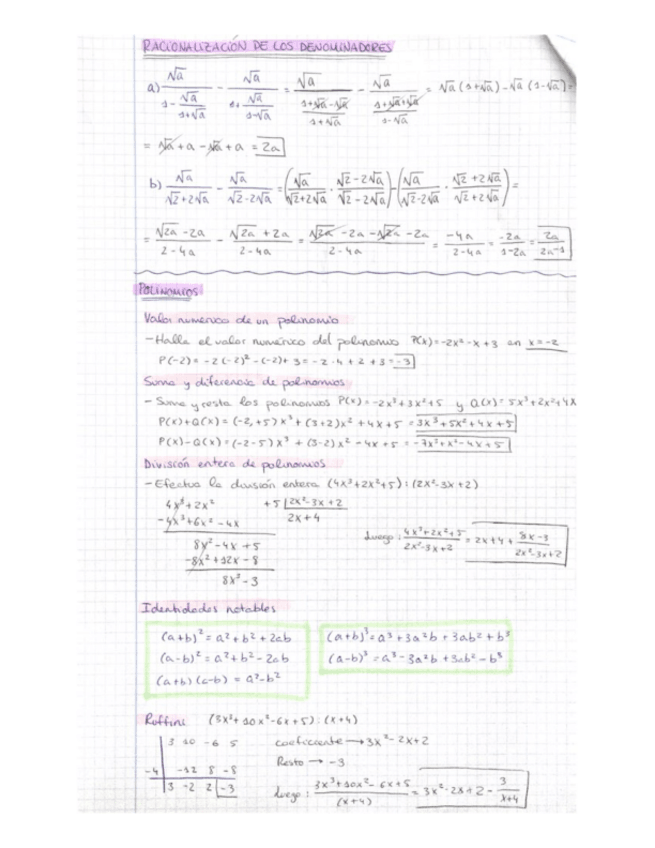 RACIONALIZACIÓN DE LOS DENOMINADORES
a) √a/(1-√a/(1+√a)) - √a/(1+√a/(1-√a)) = √a/((1+√a-√a)/(1+√a)) - √a/((1+√a+√a)/(1-√a)) = √a(1+√a)-√a(1-√a)=
= √a+a-√a+a = 2a
b) √a/(√2+2√a) - √a/(√2-2√a) = (√a/(√2+2√a) · (√2-2√a)/(√2-2√a)) - (√a/(√2-2√a) · (√2+2√a)/(√2+2√a)) =
= (√2a-2a)/(2-4a) - (√2a+2a)/(2-4a) = (√2a-2a-√2a-2a)/(2-4a) = -4a/(2-4a) = -2a/(1-2a) = 2a/(2a-1)
POLINOMIOS
Valor numérico de un polinomio
- Halla el valor numérico del polinomio P(x)=-2x²-x+3 en x=-2
P(-2) = -2(-2)²-(-2)+3 = -2·4+2+3 = -3
Suma y diferencia de polinomios
- Suma y resta los polinomios P(x)=-2x³+3x²+5 y Q(x)=5x³+2x²+4x
P(x)+Q(x)=(-2+5)x³+(3+2)x²+4x+5=3x³+5x²+4x+5
P(x)-Q(x)=(-2-5)x³+(3-2)x²-4x+5=-7x³+x²-4x+5
División entera de polinomios
- Efectua la división entera (4x³+2x²+5):(2x²-3x+2)
4x³+2x² +5 |2x²-3x+2
-4x³+6x²-4x 2x+4
8x²-4x+5
-8x²+12x-8
8x²-3
luego: (4x³+2x²+5)/(2x²-3x+2) = 2x+4+(8x-3)/(2x²-3x+2)
Identidades notables
(a+b)²=a²+b²+2ab
(a-b)²=a²+b²-2ab
(a+b)(a-b)=a²-b²
(a+b)³=a³+3a²b+3ab²+b³
(a-b)³=a³-3a²b+3ab²-b³
Ruffini (3x³+10x²-6x+5):(x+4)
3 10 -6 5
-4 -12 8 -8
3 -2 2 -3
coeficiente → 3x²-2x+2
Resto → -3
luego: (3x³+10x²-6x+5)/(x+4) = 3x²-2x+2-3/(x+4)